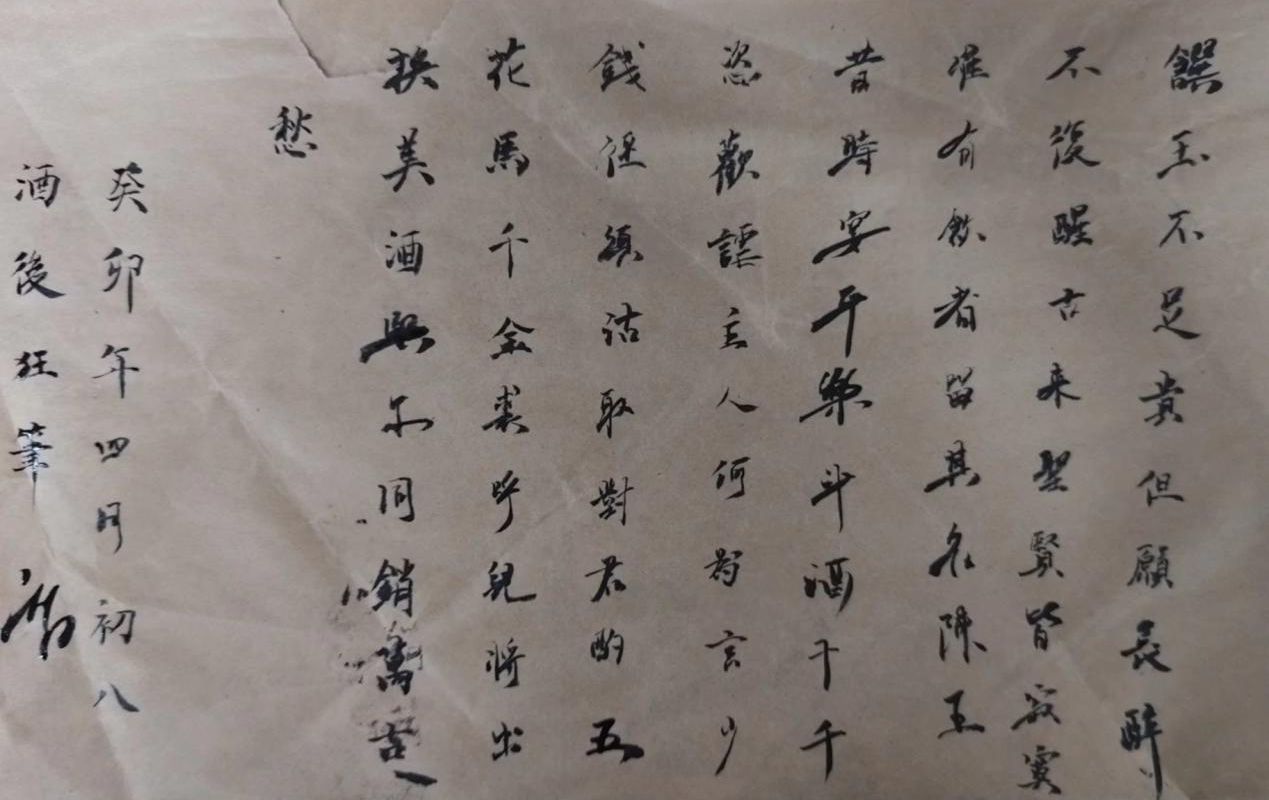 饌玉不足貴但願長醉
不復醒古来聖賢皆寂寞
惟有飲者留其名陳王
昔時宴平樂斗酒十千
恣歡謔主人何為言少
錢徑須沽取對君酌五
花馬千金裘呼兒將出
换美酒與尔同銷萬古
愁
癸卯年四月初八
酒後狂筆